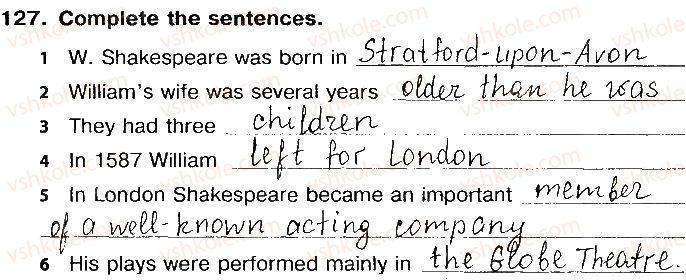 127. Complete the sentences.
1 W. Shakespeare was born in Stratford-upon-Avon
2 William's wife was several years older than he was
3 They had three children
4 In 1587 William left for London
5 In London Shakespeare became an important member
of a well-known acting company
6 His plays were performed mainly in the Globe Theatre.